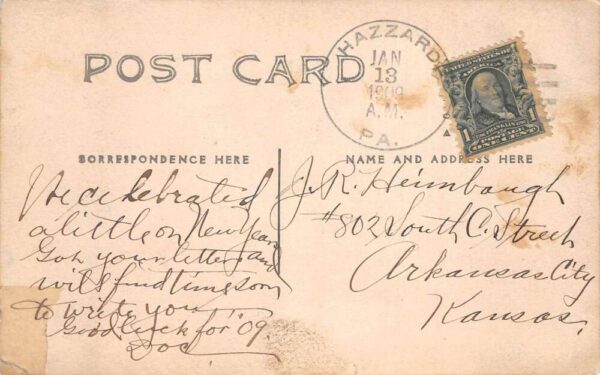 POST CARD
HAZZARD
JAN
13
1909
A.M.
PA.
UNITED STATES OF AMERICA
1 FRANKLIN 1
POSTAGE
ONE CENT
CORRESPONDENCE HERE
NAME AND ADDRESS HERE
We celebrated
a little on New Years
Got your letter and
will find time soon
to write you
Good luck for '09.
Doc
J. R. Heimbaugh
#802 South C. Street
Arkansas City
Kansas.